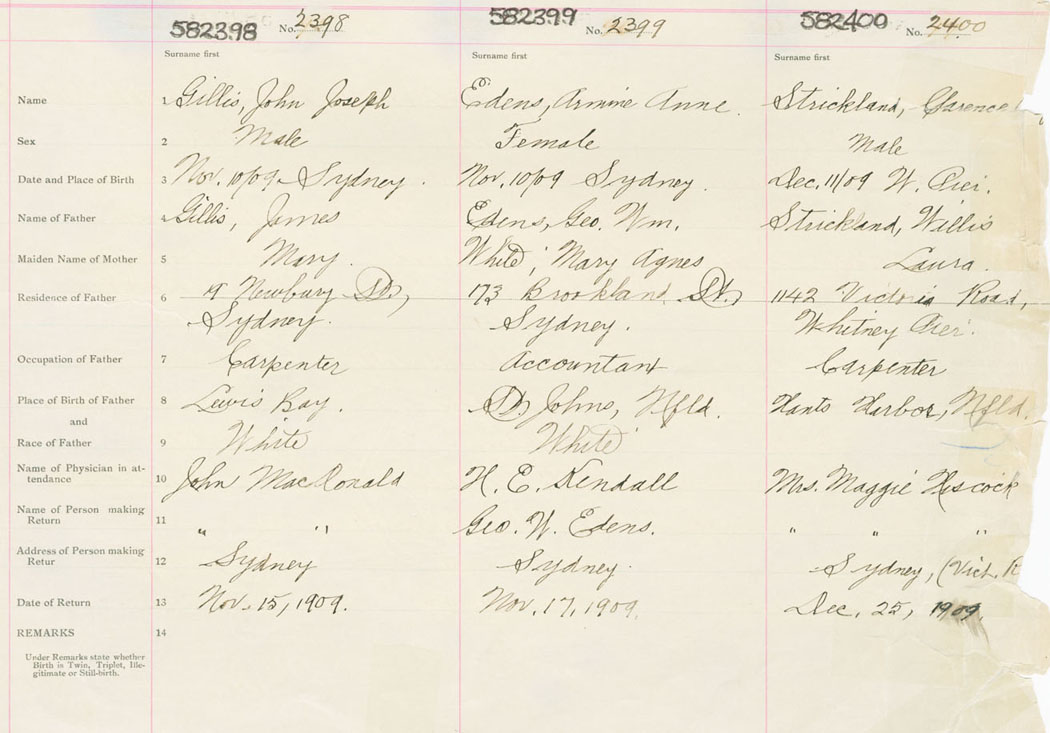 582398 No. 2398 582399 No. 2399 582400 No. 2400
Surname first Surname first Surname first
Name 1 Gillis, John Joseph Edens, Armine Anne. Strickland, Clarence
Sex 2 Male Female Male
Date and Place of Birth 3 Nov. 10/09 - Sydney. Nov. 10/09 Sydney. Dec. 11/09 W. Pier.
Name of Father 4 Gillis, James Edens, Geo. Wm. Strickland, Willis
Maiden Name of Mother 5 Mary. White, Mary Agnes Laura.
Residence of Father 6 Newbury St., 173 Brookland St., 1142 Victoria Road,
Sydney. Sydney. Whitney Pier.
Occupation of Father 7 Carpenter Accountant Carpenter
Place of Birth of Father 8 Lewis Bay. St Johns, Nfld. Hants Harbor, Nfld.
and
Race of Father 9 White White
Name of Physician in at-
tendance 10 John MacDonald H. E. Kendall Mrs. Maggie Hiscock
Name of Person making
Return 11 " " Geo. W. Edens. " " "
Address of Person making
Retur 12 Sydney Sydney. Sydney, (Vict. R
Date of Return 13 Nov. 15, 1909. Nov. 17, 1909. Dec. 25, 1909.
REMARKS 14
Under Remarks state whether
Birth is Twin, Triplet, Ille-
gitimate or Still-birth.